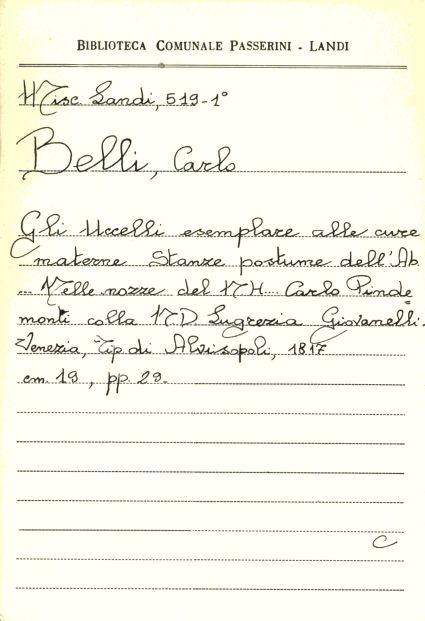 BIBLIOTECA COMUNALE PASSERINI - LANDI
Misc. Landi, 519-1°
Belli, Carlo
Gli Uccelli esemplare alle cure
materne Stanze postume dell'Ab.
... Nelle nozze del N.H. ... Carlo Pinde=
monti colla N.D. Lugrezia Giovanelli.
Venezia, Tip. di Alvisopoli, 1817
cm. 19, pp. 29.
C